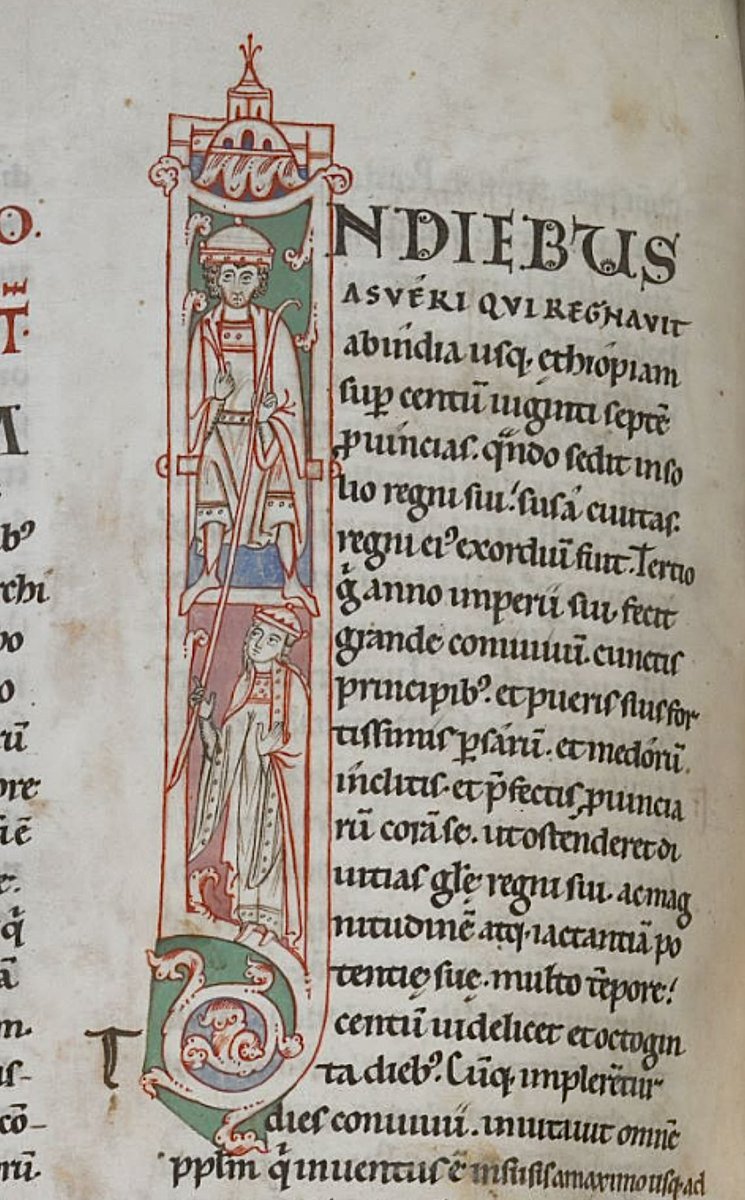 IN DIEBUS
ASVERI QVI REGNAVIT
ab india usq; ethiopiam
sup centū uiginti septē
puincias. qn̄do sedit in so
lio regni sui: susa ciuitas.
regni ei᾿ exordiū fuit. Tertio
gͥ anno imperii sui fecit
grande conuiuiū. cunctis
principib᾿. et pueris suis for
tissimis psarū. et medorū.
inclitis. et p̄fectis puincia
rū corā se. ut ostenderet di
uitias glę regni sui. ac mag
nitudinē atq; iactantiā po
tentię suę. multo tēpore:
centū uidelicet et octogin
T
ta dieb᾿. Cūq; implerētur
dies conuiuii. inuitauit omnē
pplm̄ qͥ inuentus ē in susis a maximo usq; ad